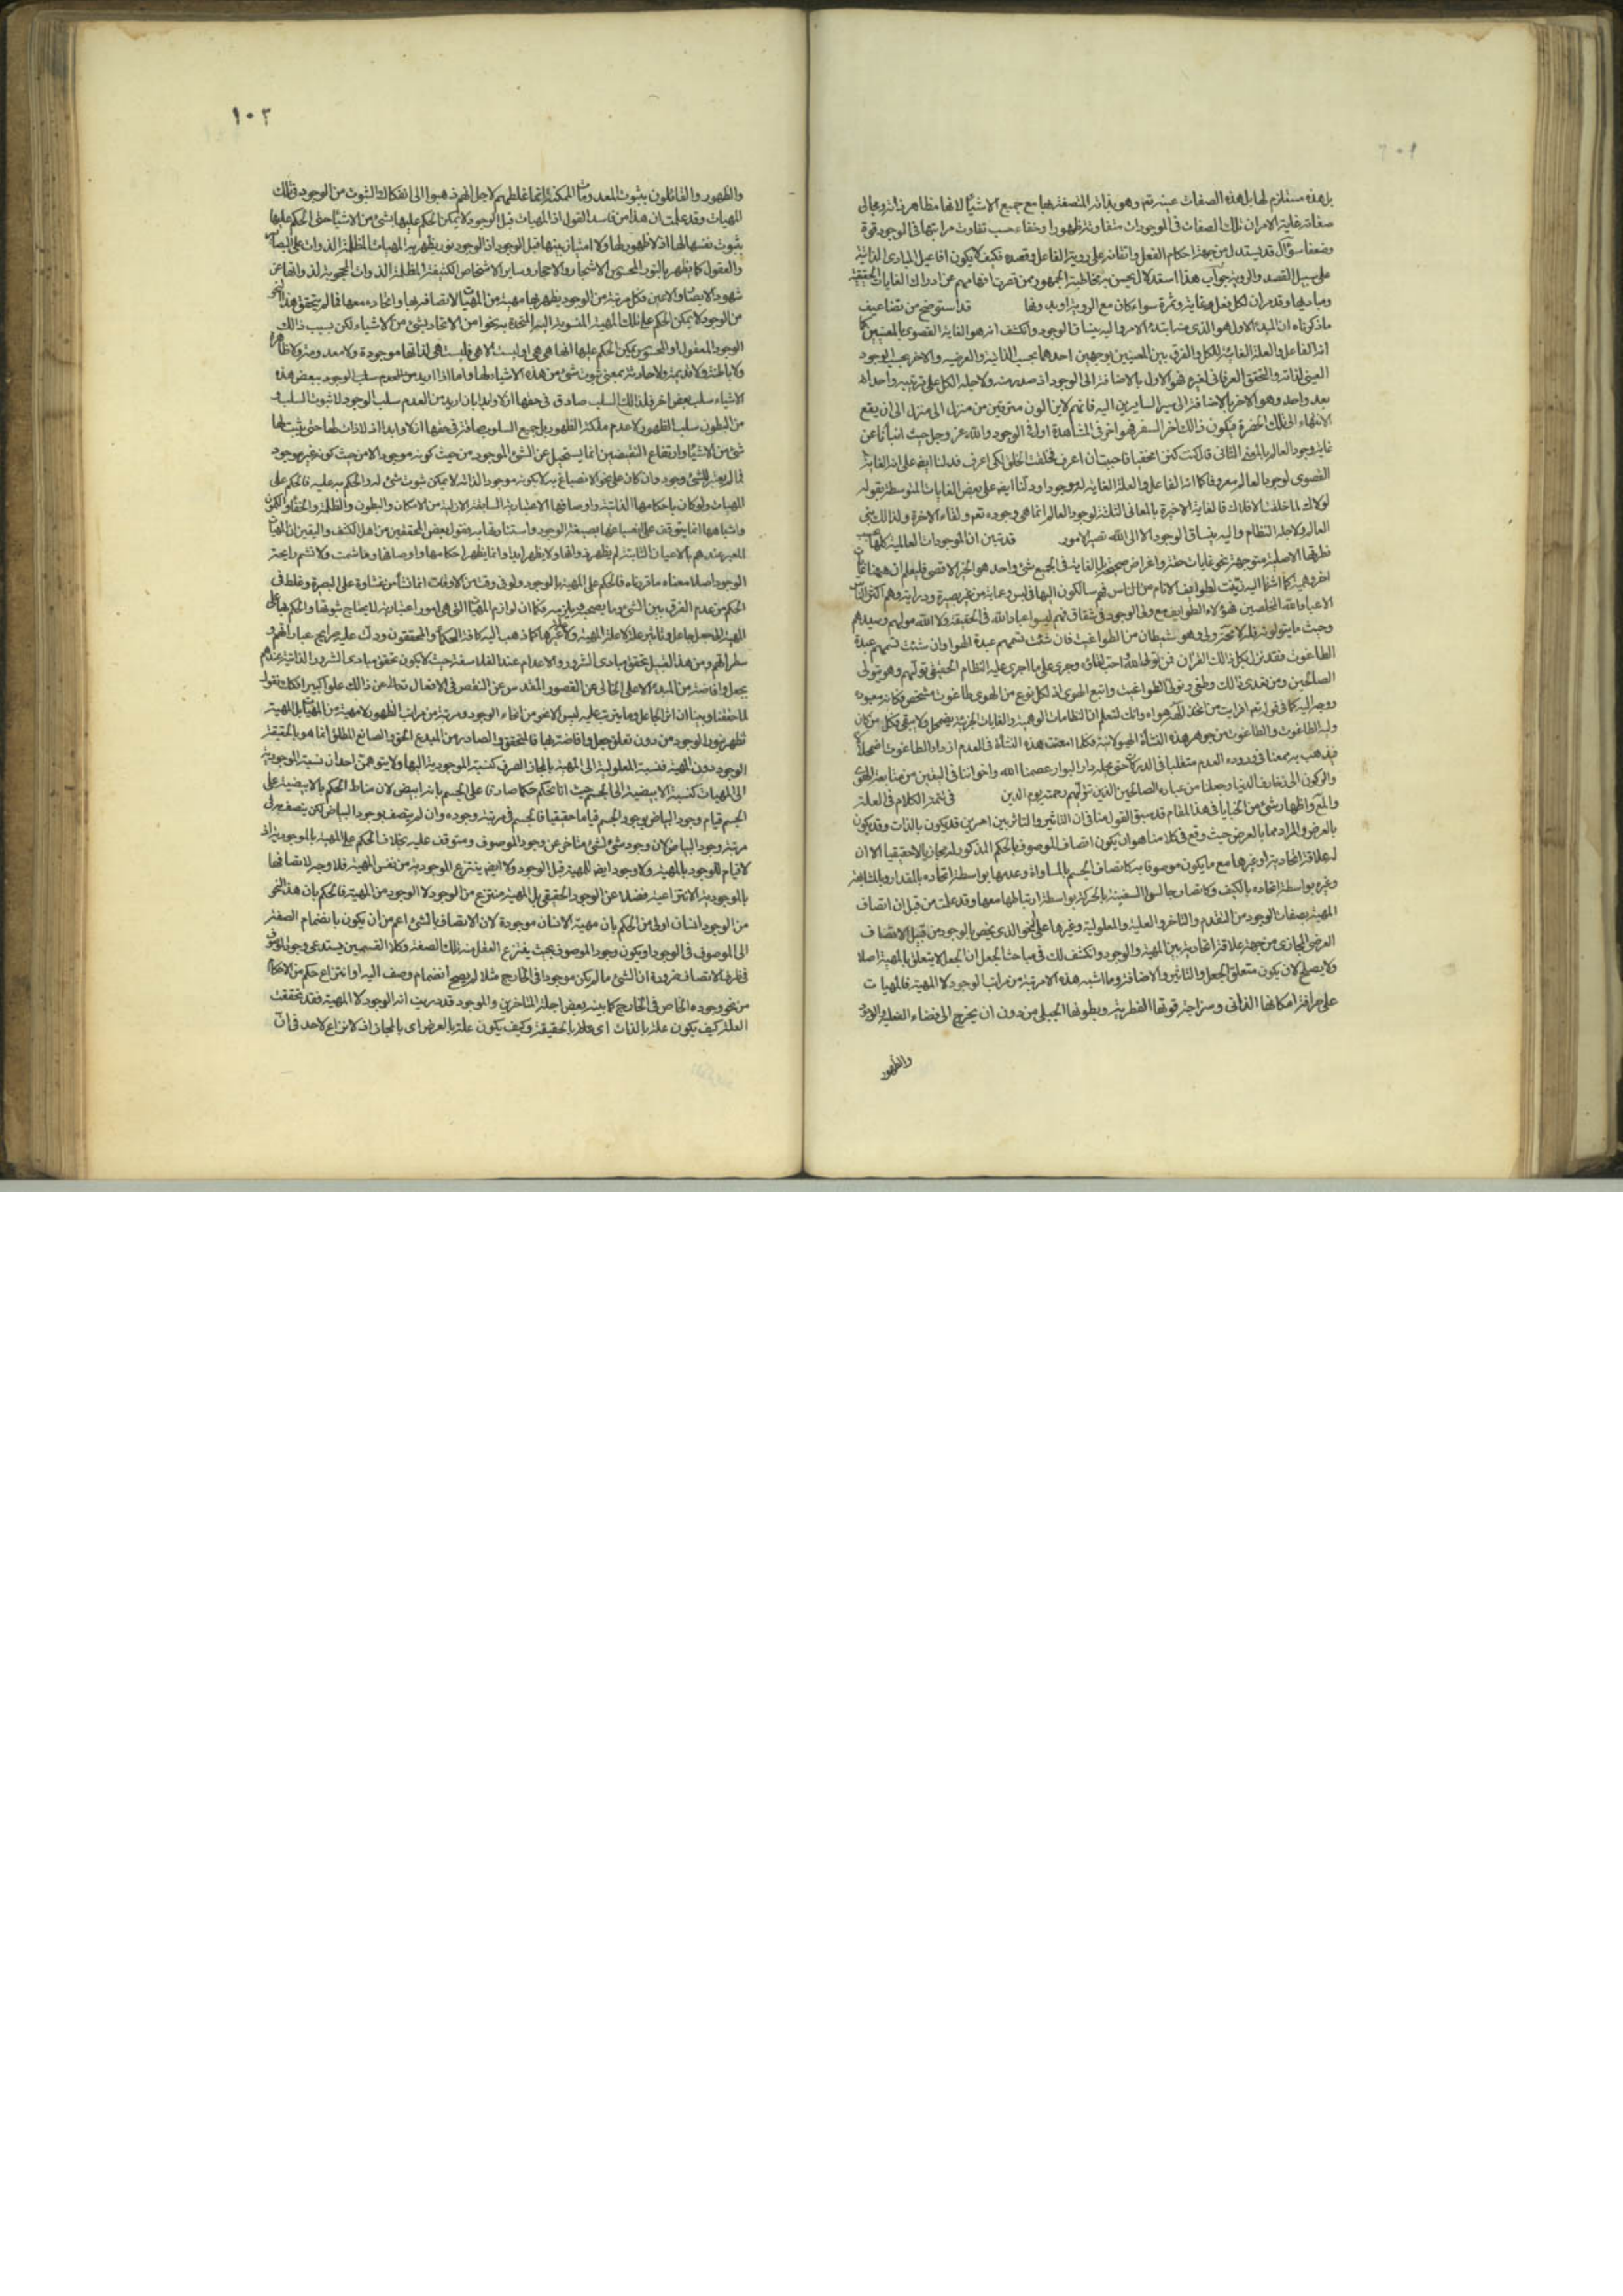 بل هذه مستلزم لها بل هذه الصفات عينه تعم وهو بذاته المتصفة بها مع جميع الاشياء لانها مظاهر ذاته ومجالى
صفاته غاية الامر ان تلك الصفات فى الموجودات متفاوتة ظهورا وخفاء حسب تفاوت مراتبها فى الوجود قوة
وضعفا سؤال قد يستدل من جهة احكام الفعل واتقانه على روية الفاعل وقصده فكيف لا يكون افاعيل المبادى الذاتية
على سبيل القصد والروية جواب هذا استدلال يحسن به مخاطبة الجمهور ممن قصرت افهامهم عن ادراك الغايات الحقيقية
ومباديها وقد مر ان لكل فعل غاية وثمرة سواء كان مع الروية او بدونها قد استوضح من تضاعيف
ما ذكرناه ان المبدء الاول هو الذى منه ابتدء الامر واليه ينساق الوجود وانكشف انه هو الغاية القصوى بالمعنيين كما
انه الفاعل والعلة الغائية للكل والفرق بين المعنيين بوجهين احدهما بحسب الذاتية والعرضيه والاخر بحسب الوجود
العينى لذاته والتحقق العرفانى لغيره فهو الاول بالاضافة الى الوجود اذ صدر منه ولاجله الكل على ترتيبه واحدا
بعد واحد وهو الاخر بالاضافة الى سير السايرين اليه فانهم لا يزالون مترقين من منزل الى منزل الى ان يقع
الانتهاء الى تلك الحضرة فيكون ذالك اخر السفر فهو اخر فى المشاهدة اول فى الوجود والله عز وجل حيث انبأنا عن
غاية وجود العالم بالمعنى الثانى قال كنت كنزا مخفيا فاحببت ان اعرف فخلقت الخلق لكى اعرف فدلنا ايض على انه الغاية
القصوى لوجود العالم معروفا كما انه الفاعل والعلة الغاية له موجودا ودلنا ايض على بعض الغايات المتوسطة بقوله
لولاك لما خلقت الافلاك فالغاية الاخيرة بالمعانى الثلثة لوجود العالم انما هى وجوده تعم ولقاء الاخرة ولذالك بنى
العالم ولاجله النظام واليه ينساق الوجود الا الى الله تصير الامور قد تبين ان الموجودات العالمية كلها بحسب
فطرتها الاصلية متوجهة نحو غايات حقة واغراض صحيحة بل الغاية فى الجميع شئ واحد هو الخير الاقصى فليعلم ان ههنا غايات
اخر وهمية كما اشرنا اليه زينت لطوايف الانام من الناس فهم سالكون اليها فى لبس وعماية من غير بصيرة ودراية وهم اكثر الناس
الا عباد الله المخلصين فهؤلاء الطوايف مع ولى الوجود فى شقاق فهم ليسوا عباد الله فى الحقيقة ولا الله موليهم وسيدهم
وحيث ما يتولونه فله لا محة ولى وهو شيطان من الطواغيت فان شئت سمهم عبدة الهوا وان شئت سمهم عبدة
الطاغوت فقد نزل بكل ذالك القران فمن تولى الله واحب لقائه وجرى على ما اجرى عليه النظام الحقيقى تولاهم وهو يتولى
الصالحين ومن تعدى ذالك وطغى وتولى الطواغيت واتبع الهوى اذ لكل نوع من الهوى طاغوت مشخص فكانه معبوده
ووجه اليه كما فى قوله تعم افرايت من اتخذ الهه هواه وانك لتعلم ان النظامات الوهمية والغايات الجزئية يضمحل ولا يبقى فكل من كان
وليه الطاغوت والطاغوت من جوهر هذه النشأة الهيولانية فكلما امعنت هذه النشأة فى العدم ازداد الطاغوت اضمحلالا
فيذهب به ممعنا فى وروده العدم متقلبا فى الدركات حتى يحله دار البوار عصمنا الله واخواننا فى اليقين من متابعة الهوى
والركون الى زخارف الدنيا وجعلنا من عباده الصالحين الذين تولاهم برحمته يوم الدين فى تتمة الكلام فى العلة
والمع واظهار شئ من الخبايا فى هذا المقام قد سبق القول منا فى ان التاثير والتاثر بين امرين قد يكون بالذات وقد يكون
بالعرض والمراد مما بالعرض حيث وقع فى كلامنا هو ان يكون اتصاف الموصوف بالحكم المذكور له مجازيا لا حقيقيا الا ان
له علاقة اتحادية او غيرها مع ما يكون موصوفا به كاتصاف الجسم بالمساواة وعدمها بواسطة اتحاده بالمقدار وبالمشابهة
وغيره بواسطة اتحاده بالكيف وكاتصاف جالس السفينة بالحركة بواسطة ارتباطها معها وقد علمت من قبل ان اتصاف
المهية بصفات الوجود من التقدم والتاخر والعلية والمعلولية وغيرها على النحو الذى يختص بالوجود من قبيل الاتصاف
العرضى المجازى من جهة علاقة اتحادية بين المهية والوجود وانكشف لك فى مباحث الجعل ان الجعل لا يتعلق بالمهية اصلا
ولا يصلح لان يكون متعلق الجعل والتاثير والاضافة وما اشبه هذه الا مرتبة من مراتب الوجود لا المهية فالمهيات
على صرافة امكانها الذاتى وسزاجة قوتها الفطرية وبطونها الجبلى من دون ان يخرج الى فضاء الفعلية والوجود
والظهور
١٠٢
والظهور والقائلون بثبوت المعدومات الممكنة انما غلطهم لاجل انهم ذهبوا الى انفكاك الثبوت من الوجود فى تلك
المهيات وقد علمت ان هذا من فاسد القول اذ المهيات قبل الوجود لا يمكن الحكم عليها بشئ من الاشياء حتى الحكم عليها
بثبوت نفسها لها اذ لا ظهور لها ولا امتياز بينها قبل الوجود اذ الوجود نور يظهر به المهيات المظلمة الذوات على البصاير
والعقول كما يظهر بالنور المحسوس الاشجار والاحجار وساير الاشخاص الكثيفة المظلمة الذوات المحجوبة لذواتها عن
شهود الابصار والاعين فكل مرتبة من الوجود يظهر بها مهية من المهيات لاتصافه بها واتحاده معها فما لم يتحقق هذا النحو
من الوجود لا يمكن الحكم على تلك المهية المنسوبة اليه المتحدة به بنحو من الاتحاد بشئ من الاشياء لكن بسبب ذالك
الوجود المعقول او المحسوس يمكن الحكم عليها انها هى هى او ليست الا هى فليست هى لذاتها موجودة ولا معدومة ولا ظاهرة
ولا باطنة ولا قديمة ولا حادثة بمعنى ثبوت شئ من هذه الاشياء لها واما اذا اريد من العدم سلب الوجود ببعض هذه
الاشياء سلب بعض اخر فلذالك السلب صادق فى حقها ازلا وابدا بان اريد من العدم سلب الوجود لا ثبوت السلب و
من البطون سلب الظهور لا عدم ملكة الظهور بل جميع السلوب صادقة فى حقها ازلا وابدا اذ لا ذات لها حتى يثبت لها
شئ من الاشياء وارتفاع النقيضين انما يستحيل عن الشئ الموجود من حيث كونه موجودا لا من حيث كونه غير موجود
فما لم يعتبر للشئ وجود وان كان على نحو الانصباغ به لا بكونه موجود الذاته لا يمكن ثبوت شئ له والحكم به عليه فالحكم على
المهيات ولو كان باحكامها الذاتية واوصافها الاعتبارية السابقة الازلية من الامكان والبطون والظلمة والخفاء والكمون
واشباهها انما يتوقف على انصباغها بصبغة الوجود واستنارتها به فقول بعض المحققين من اهل الكشف واليقين ان المهيات
المعبر عندهم بالاعيان الثابتة لم يظهر ذواتها ولا يظهر ابدا وانما يظهر احكامها واوصافها وما شمت ولا تشم رايحة
الوجود اصلا معناه ما قررناه فالحكم على المهية بالوجود ولو فى وقت من الاوقات انما نشأ من غشاوة على البصيرة وغلط فى
الحكم من عدم الفرق بين الشئ وما يصحبه ويلزمه فكما ان لوازم المهيات التى هى امور اعتبارية لا يحتاج ثبوتها والحكم بها على
المهية الى جعل جاعل وتاثير علة لا علة المهية ولا غيرها كما ذهب اليه كافة الحكماء والمحققون ودلت عليه صرايح عباراتهم و
سطراتهم ومن هذا القبيل تحقق مبادى الشرور والاعدام عند الفلاسفة حيث لا يكون تحقق مبادى الشرور الذاتية عندهم
بجعل وافاضة من المبدء الاعلى الخالى عن القصور المقدس عن النقص فى الافعال تعالى عن ذالك علوا كبيرا فكك نقول
لما حققنا وبينا ان اثر الجاعل وما يترتب عليه ليس الا نحو من انحاء الوجود ومرتبة من مراتب الظهور لا مهية من المهيات بل المهية
تظهر بنور الوجود من دون تعلق جعل وافاضة بها فالمتحقق والصادر من المبدع الحق والصانع المطلق انما هو بالحقيقة
الوجود دون المهية فنسبة المعلولية الى المهية بالمجاز الصرف كنسبة الموجودية اليها ولا يتوهمن احد ان نسبة الموجودية
الى المهيات كنسبة الابيضية الى الجسم حيث انا نحكم حكما صادقا على الجسم بانه ابيض لان مناط الحكم بالابيضية على
الجسم قيام وجود البياض بوجود الجسم قياما حقيقيا فالجسم فى مرتبة وجوده وان لم يتصف بوجود البياض لكن يتصف به فى
مرتبة وجود البياض لان وجود شئ لشئ متاخر عن وجود الموصوف ومتوقف عليه بخلاف الحكم على المهية بالموجودية اذ
لا قيام للوجود بالمهية ولا وجود ايض للمهية قبل الوجود ولا ايض ينتزع الموجودية من نفس المهية فلا وجه لاتصافها
بالموجودية الانتزاعية فضلا عن الوجود الحقيقى بل المهية منتزع من الوجود لا الوجود من المهية فالحكم بان هذا النحو
من الوجود انسان اولى من الحكم بان مهية الانسان موجودة لان الاتصاف بالشئ اعم من ان يكون بانضمام الصفة
الى الموصوف فى الوجود او يكون وجود الموصوف بحيث ينتزع العقل منه تلك الصفة وكلا القسمين يستدعى وجود الموصوف
فى ظرف الاتصاف ضرورة ان الشئ ما لم يكن موجودا فى الخارج مثلا لم يصح انضمام وصف اليه او انتزاع حكم من الاحكام
من نحو وجوده الخاص فى الخارج كما بينه بعض اجلة المتاخرين والموجود قد دريت انه الوجود لا المهية فقد تحققت
العلة كيف يكون علة بالذات اى علة بالحقيقة وكيف يكون علة بالعرض اى بالمجاز اذ لا نزاع لاحد فى ان